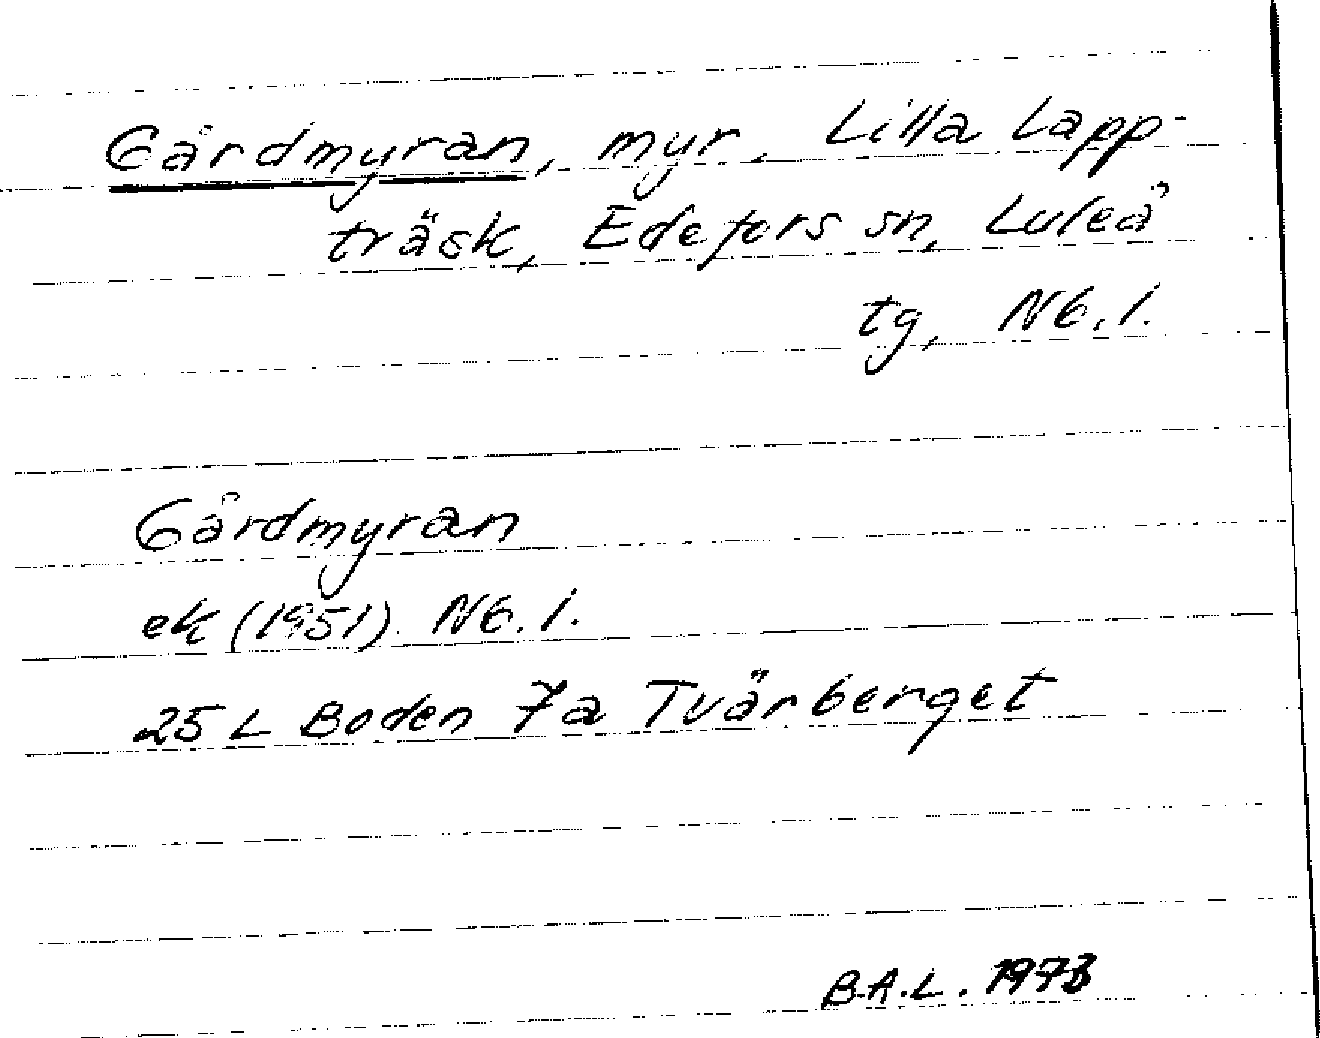 Gårdmyran, myr, Lilla Lapp-
träsk, Edefors sn, Luleå
tg, Nb.l.
Gårdmyran
ek (1951). Nb.l.
25 L Boden 7a Tvärberget
B.A.L. 1973